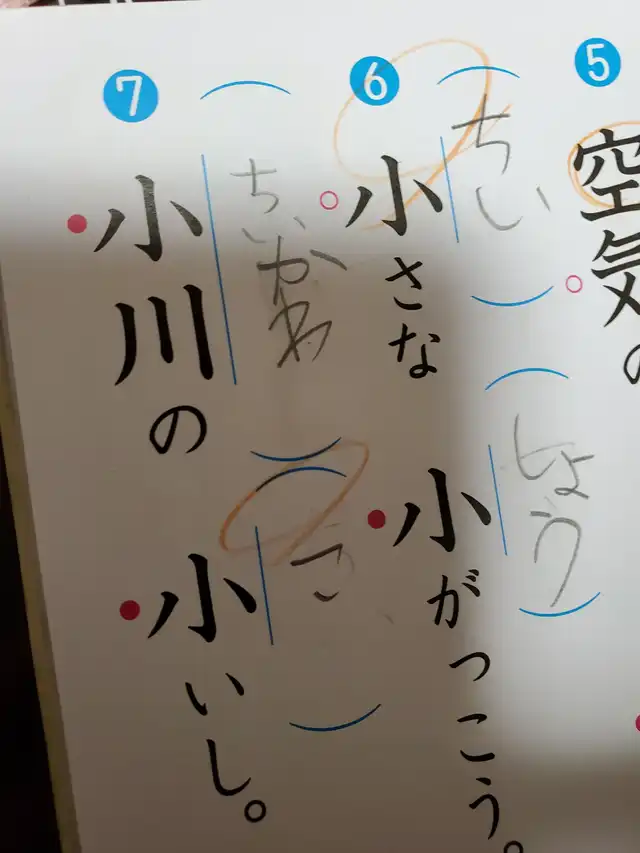 5
空気の
6
(ちい)
(しょう)
小さな小がっこう。
7
(ちいかわ)
(こ)
小川の小いし。